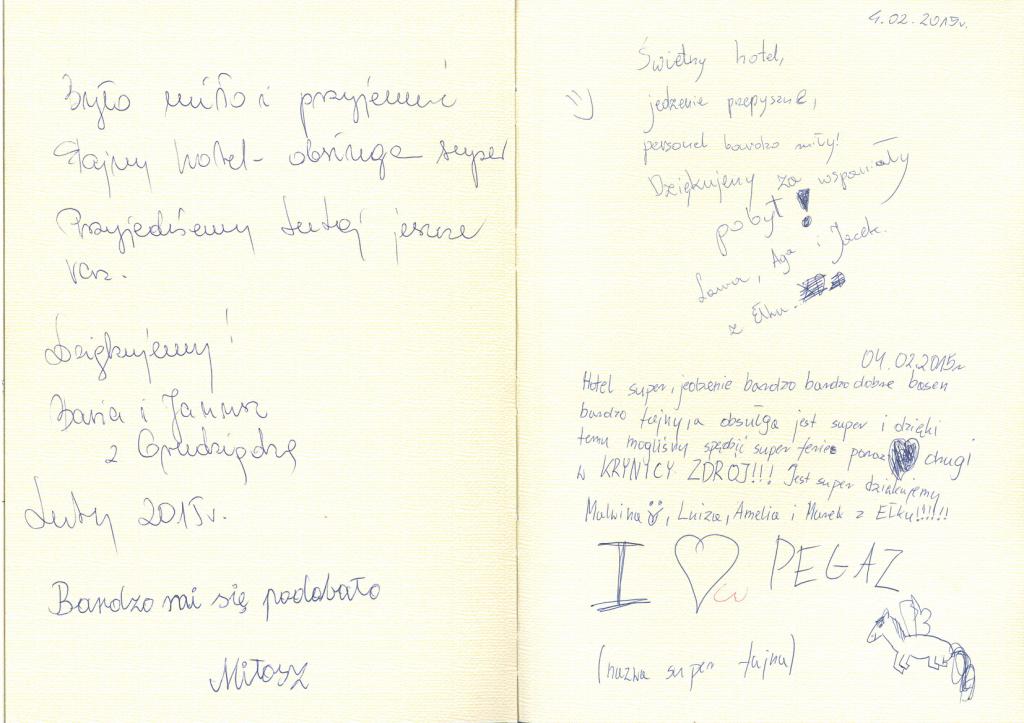 Było miło i przyjemnie
Fajny hotel - obsługa super
Przyjedziemy tutaj jeszcze
raz.
Dziękujemy!
Basia i Janusz
z Grudziądza
Luty 2015r.
Bardzo mi się podobało
Miłosz
4.02.2015r.
Świetny hotel,
jedzenie przepyszne,
personel bardzo miły!
Dziękujemy za wspaniały
pobyt!
Laura, Aga i Jacek.
z Ełku.
04.02.2015r
Hotel super, jedzenie bardzo bardzo dobre basen
bardzo fajny, a obsułga jest super i dzięki
temu mogliśmy spędzić super ferie poraz drugi
w KRYNICY ZDROJ!!! Jest super dziękujemy
Malwina, Luiza, Amelia i Marek z Ełku!!!!!
I PEGAZ
(nazwa super fajna)